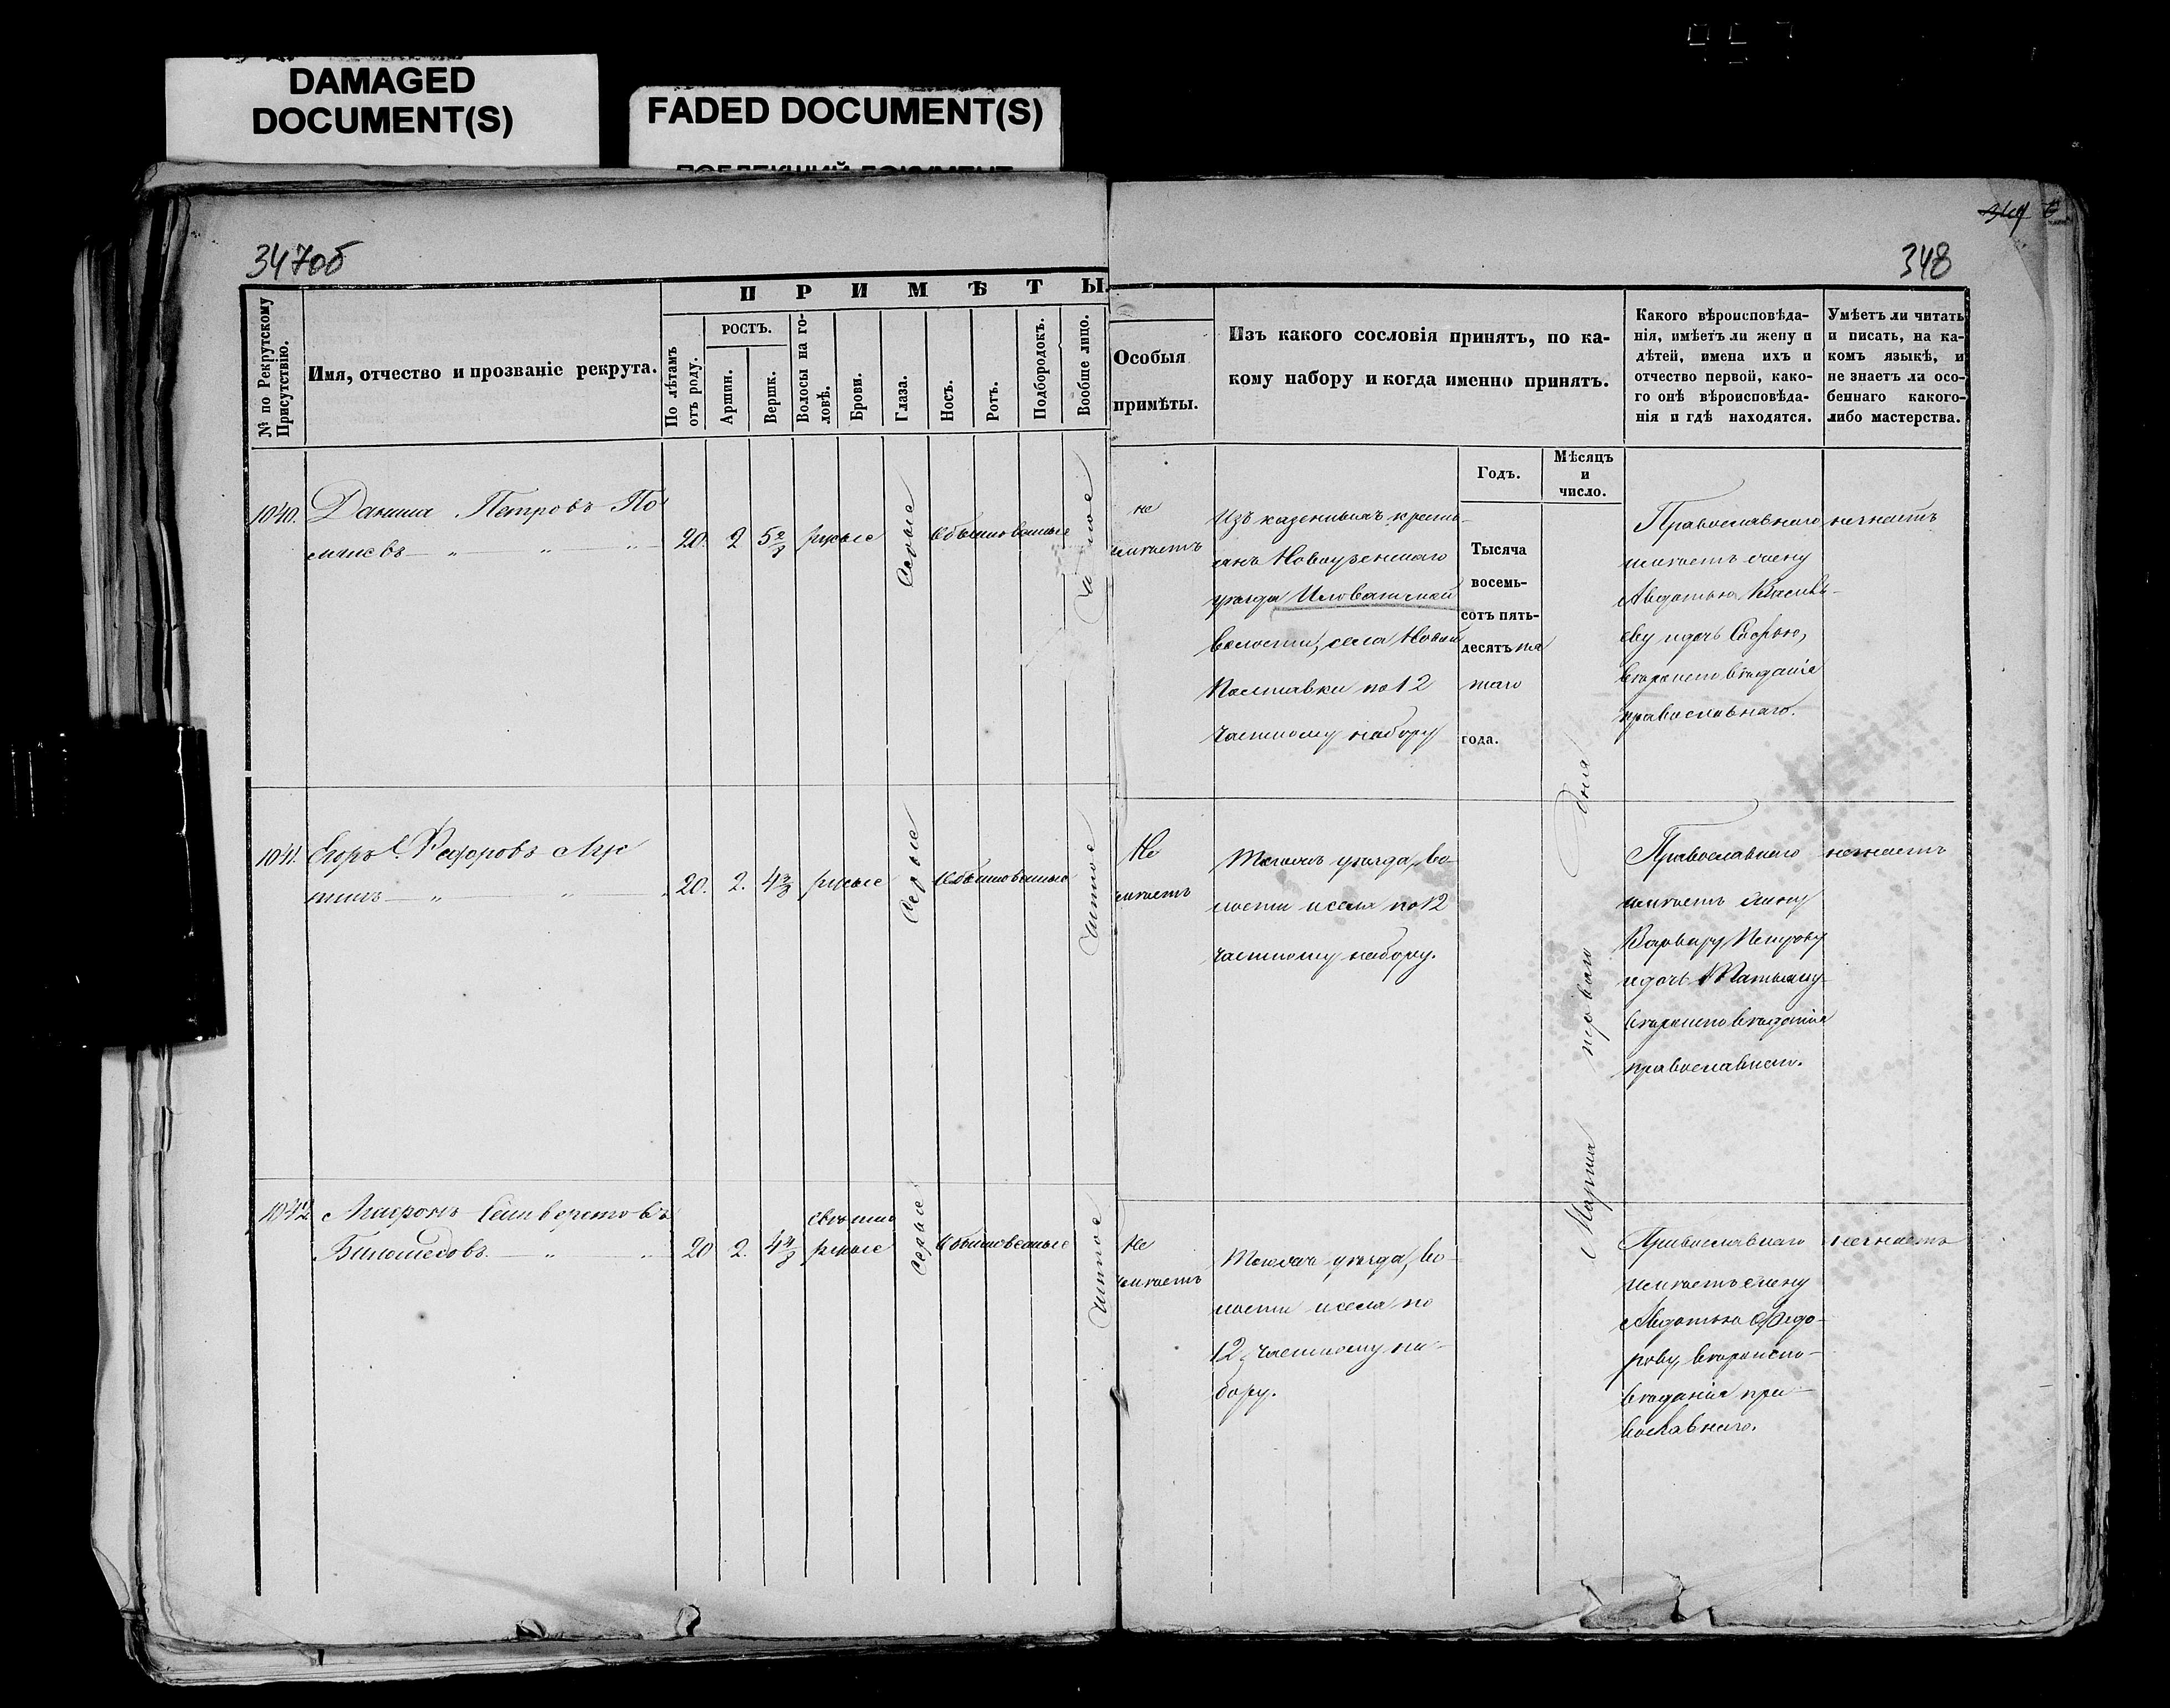 DAMAGED
DOCUMENT(S)
FADED DOCUMENT(S)
347об
348
№ по Рекрутскому
Присутствію.
Имя, отчество и прозваніе рекрута.
ПРИМѢТЫ.
По лѣтамъ
отъ роду.
РОСТЪ.
Аршин.
Вершк.
Волосы на го-
ловѣ.
Брови.
Глаза.
Носъ.
Ротъ.
Подбородокъ.
Вообще лицо.
Особыя
примѣты.
Изъ какого сословія принятъ, по ка-
кому набору и когда именно принятъ.
Какого вѣроисповѣда-
нія, имѣетъ ли жену и
дѣтей, имена ихъ и
отчество первой, како-
го онѣ вѣроисповѣда-
нія и гдѣ находятся.
Умѣетъ ли читать
и писать, на ка-
комъ языкѣ, и
не знаетъ ли осо-
беннаго какого-
либо мастерства.
Годъ.
Мѣсяцъ
и
число.
1040.
Данила Петровъ По
20. 2 5 2/8 русые
Серые
Обыкновенные
чистое
не
имѣетъ
Изъ казенныхъ кресть-
янъ Новоузенскаго
уѣзда Иловатской
волости, села Новой
Полтавки по 12
частному набору
Тысяча
восемь-
сотъ пять-
десятъ пя
таго
года.
Марта перваго дня
Православнаго
имѣетъ жену
Авдотью Василь-
еву и дочь Софью,
вѣроисповѣданія
православнаго.
незнаетъ
1041.
Егоръ Федоровъ
20. 2. 4 3/8 русые
Серые
Обыкновенные
чистое
Не
имѣетъ
Тогожъ уѣзда, во-
лости и села по 12
частному набору.
Православнаго
имѣетъ жену
Варвару Петрову
и дочь Татьяну
вѣроисповѣданія
православнаго.
незнаетъ
1042
Агафонъ Селиверстовъ
20 2. 4 4/8
свѣтло
русые
Серые
Обыкновенные
чистое
Не
имѣетъ
Тогожъ уѣзда, во-
лости и села по
12 частному на-
бору.
Православнаго
имѣетъ жену
Авдотью Федо-
рову, вѣроиспо-
вѣданія пра-
вославнаго.
незнаетъ